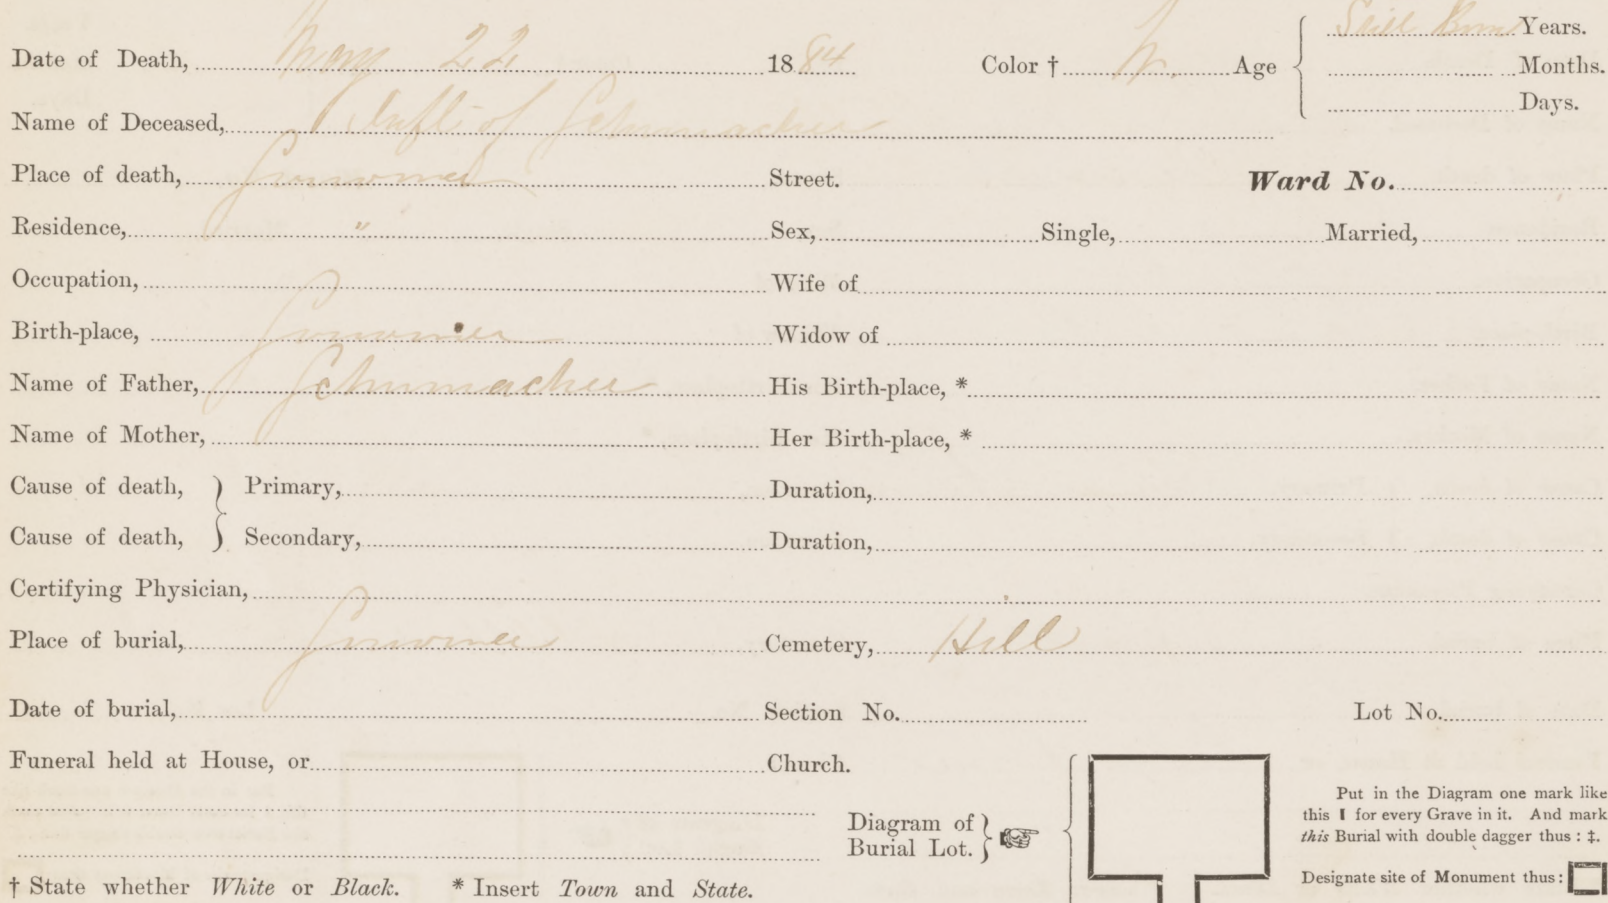 Date of Death, May 22 1884 Color † W. Age Still Born Years.
Months.
Days.
Name of Deceased, Inft. of Schumacher
Place of death, Street. Ward No.
Residence, " Sex, Single, Married,
Occupation, Wife of
Birth-place, Widow of
Name of Father, Schumacher His Birth-place, *
Name of Mother, Her Birth-place, *
Cause of death, } Primary, Duration,
Cause of death, } Secondary, Duration,
Certifying Physician,
Place of burial, Cemetery, Hill
Date of burial, Section No. Lot No.
Funeral held at House, or Church.
Diagram of
Burial Lot.
Put in the Diagram one mark like
this I for every Grave in it. And mark
this Burial with double dagger thus : ‡.
Designate site of Monument thus :
† State whether White or Black. * Insert Town and State.